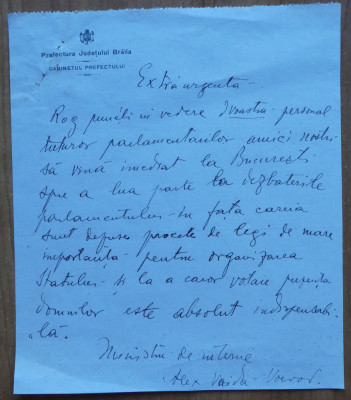 Prefectura Județului Brăila
CABINETUL PREFECTULUI
Extra urgenta
Rog puneți in vedere Dvoastră personal
tuturor parlamentarilor amici noștri
să vină imediat la București
spre a lua parte la dezbaterile
parlamentului in fata careia
sunt depuse proecte de legi de mare
importanță pentru organizarea
Statului și la a caror votare prezența
domnilor este absolut indispensabi-
lă.
Ministru de interne
Alex Vaida Voevod